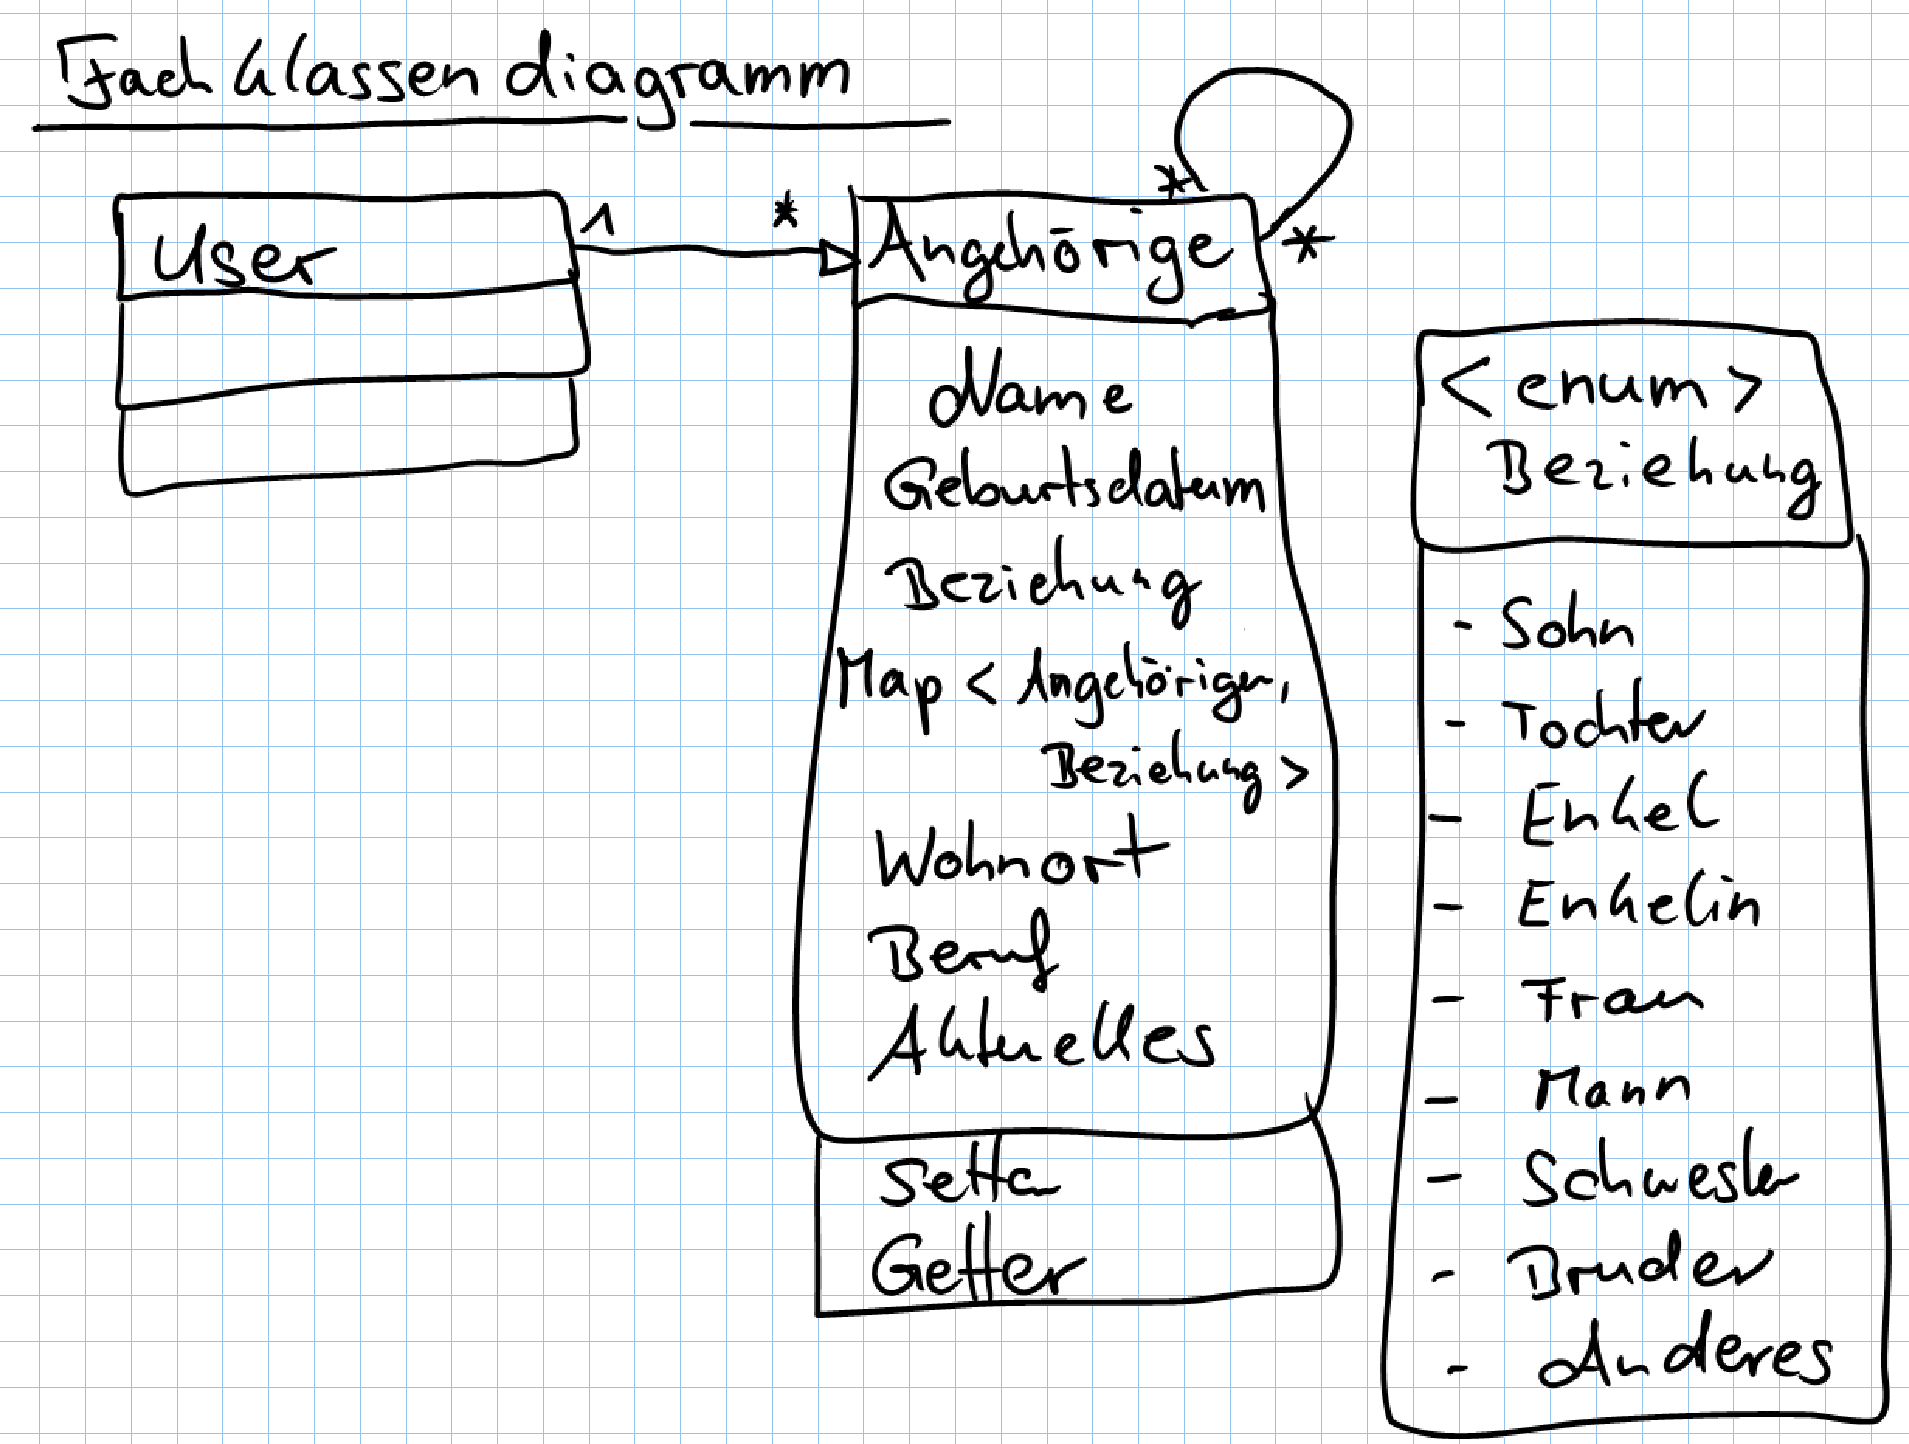 Fachklassendiagramm
User
1
*
Angehörige
*
*
Name
Geburtsdatum
Beziehung
Map < Angehörigen,
Beziehung >
Wohnort
Beruf
Aktuelles
Setter
Getter
< enum >
Beziehung
- Sohn
- Tochter
- Enkel
- Enkelin
- Frau
- Mann
- Schwester
- Bruder
- Anderes